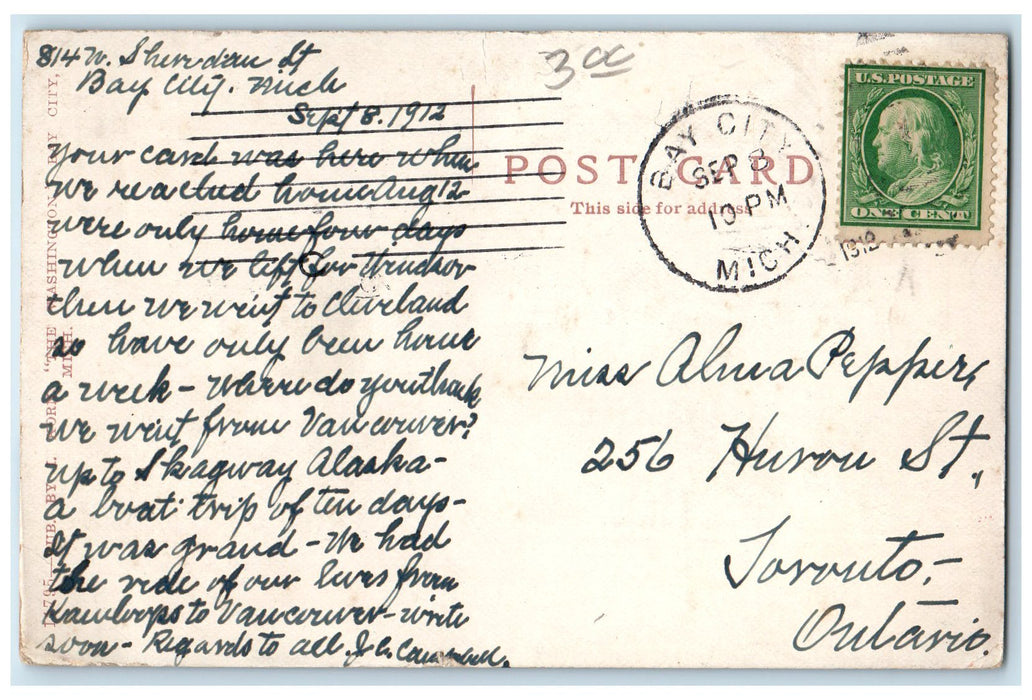 814 N. Sheridan St
Bay City. Mich
Sept 8. 1912
Your card was here when
we reached home Aug 12
were only home four days
when we left for Windsor
then we went to Cleveland
so have only been home
a week - where do you think
we went from Vancouver?
up to Skagway Alaska -
a boat trip of ten days -
It was grand - We had
the ride of our lives from
Kamloops to Vancouver - write
soon - Regards to all. J. C. Campbell.
"THE WASHINGTON, BAY CITY,
MICH.
3 00
POST CARD
This side for address
BAY CITY
SEP 8
10 PM
MICH
1912
U.S. POSTAGE
ONE CENT
Miss Alma Pepper,
256 Huron St.,
Toronto, -
Ontario.